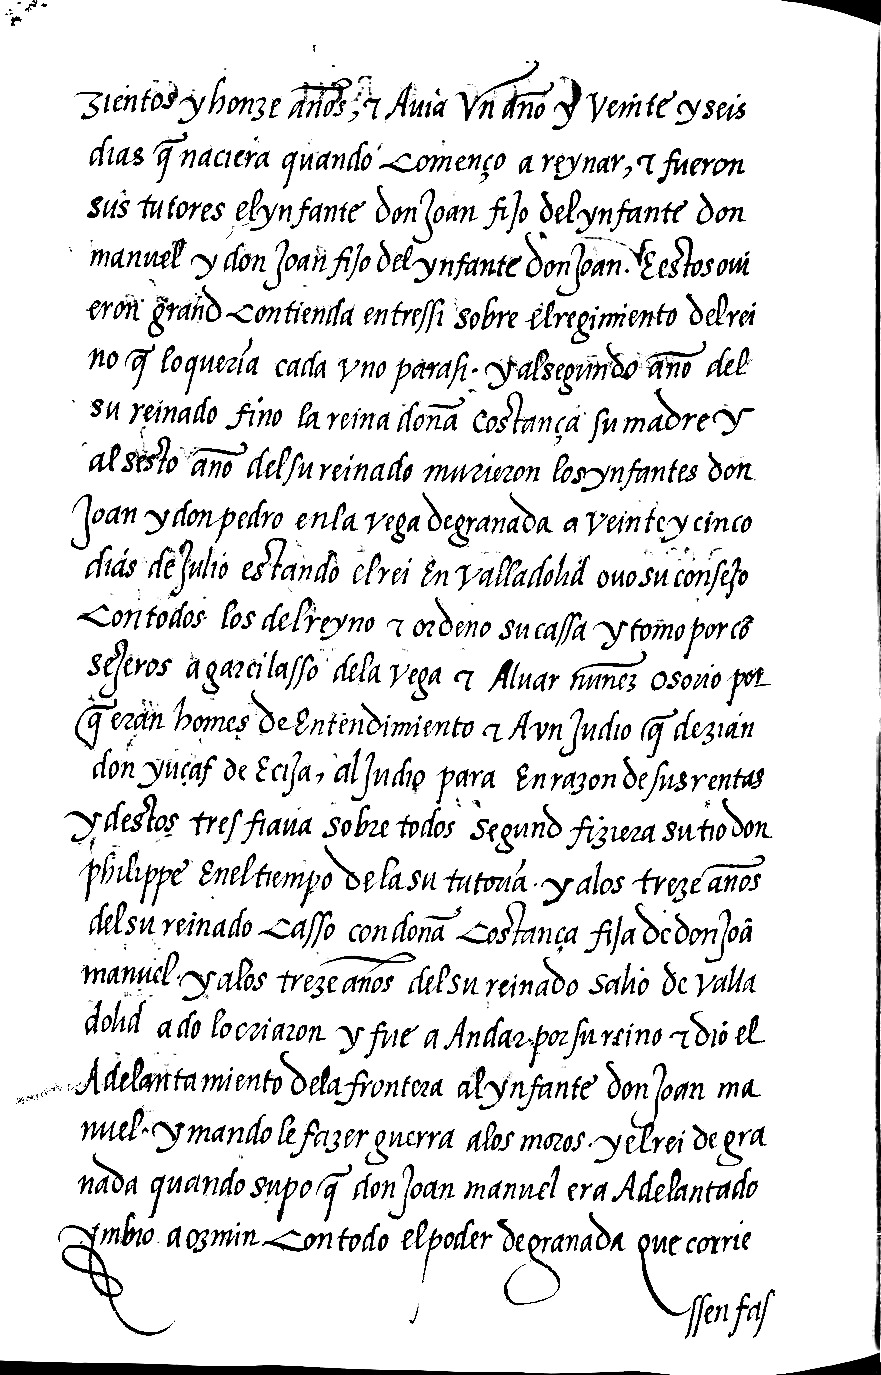 zientos y honze años, τ Avia Vn año y Veinte y seis
dias q̃ naciera quando Començo a reynar, τ fueron
sus tutores el ynfante don Joan fijo del ynfante don
manuel y don Joan fijo del ynfante don Joan. E estos ovi
eron grand Contienda entressi sobre el regimiento del rei
no q̃ lo queria cada vno parasi. y al segundo año del
su reinado fino la reina doña Costança su madre y
al sesto año del su reinado murieron los ynfantes don
Joan y don pedro en la vega de granada a Veinte y cinco
dias de Julio estando el rei En Valladolid ovo su consejo
Con todos los del reyno τ ordeno su cassa y tomo por cõ
sejeros a garcilasso de la Vega τ Alvar nuñez Osorio por
q̃ eran homes de Entendimiento τ A vn Judio q̃ dezian
don yuçaf de Ecija, al Judio para En razon de sus rentas
y destos tres fiaua sobre todos segund fiziera su tio don
philippe En el tiempo de la su tutoria. y a los treze años
del su reinado Casso con doña Costança fija de don Joã
manuel. y a los treze años del su reinado salio de Valla
dolid a do lo criaron y fue a Andar por su reino τ dio el
Adelantamiento de la frontera al ynfante don Joan ma
nuel. y mando le fazer guerra a los moros. y el rei de gra
nada quando supo q̃ don Joan manuel era Adelantado
ymbio a ozmin Con todo el poder de granada que corrie
ssen fas